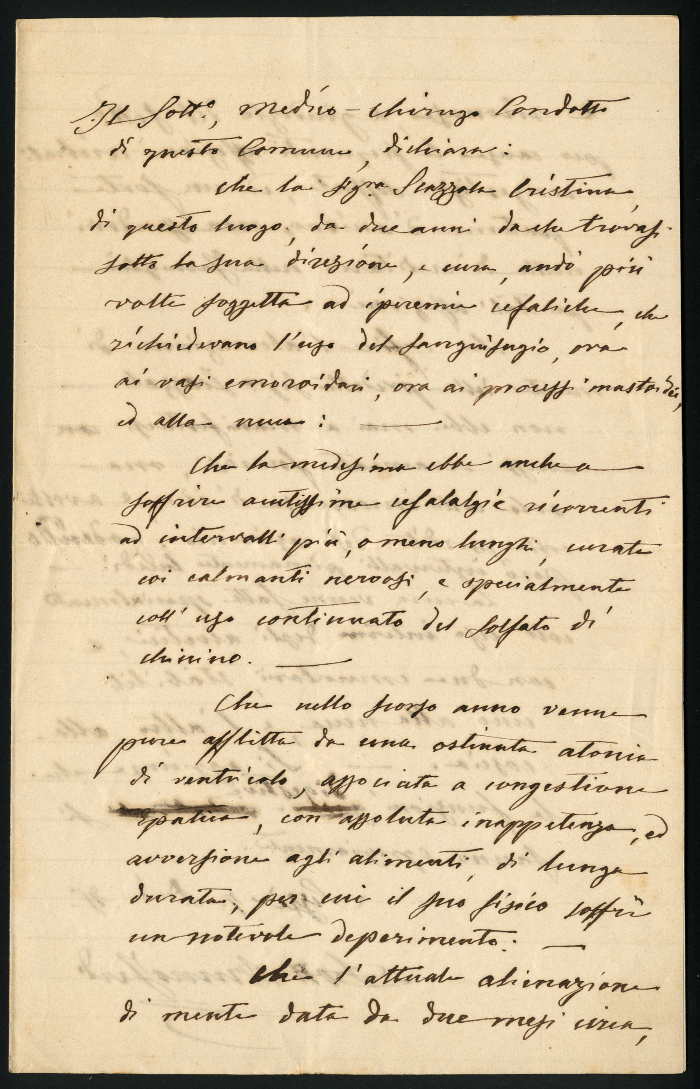 Il Sott.º, Medico-chirurgo Condotto
di questo Comune, dichiara:
che la Sig.ra Scazzola Cristina
di questo luogo, da due anni da che trovasi
sotto la sua direzione, e cura, andò più
volte soggetta ad iperemie cefaliche, che
richiedevano l'uso del sanguisugio, ora
ai vasi emoroidari, ora ai processi mastoidei,
ed alla nuca: —
Che la medesima ebbe anche a
soffrire acutissime cefalalgie ricorrenti
ad intervalli più, o meno lunghi, curate
coi calmanti nervosi, e specialmente
coll'uso continuato del solfato di
chinino. —
Che nello scorso anno venne
pure afflitta da una ostinata atonia
di ventricolo, associata a congestione
epatica, con assoluta inappetenza, ed
avversione agli alimenti, di lunga
durata, per cui il suo fisico soffrì
un notevole deperimento: —
che l'attuale alienazione
di mente data da due mesi circa,